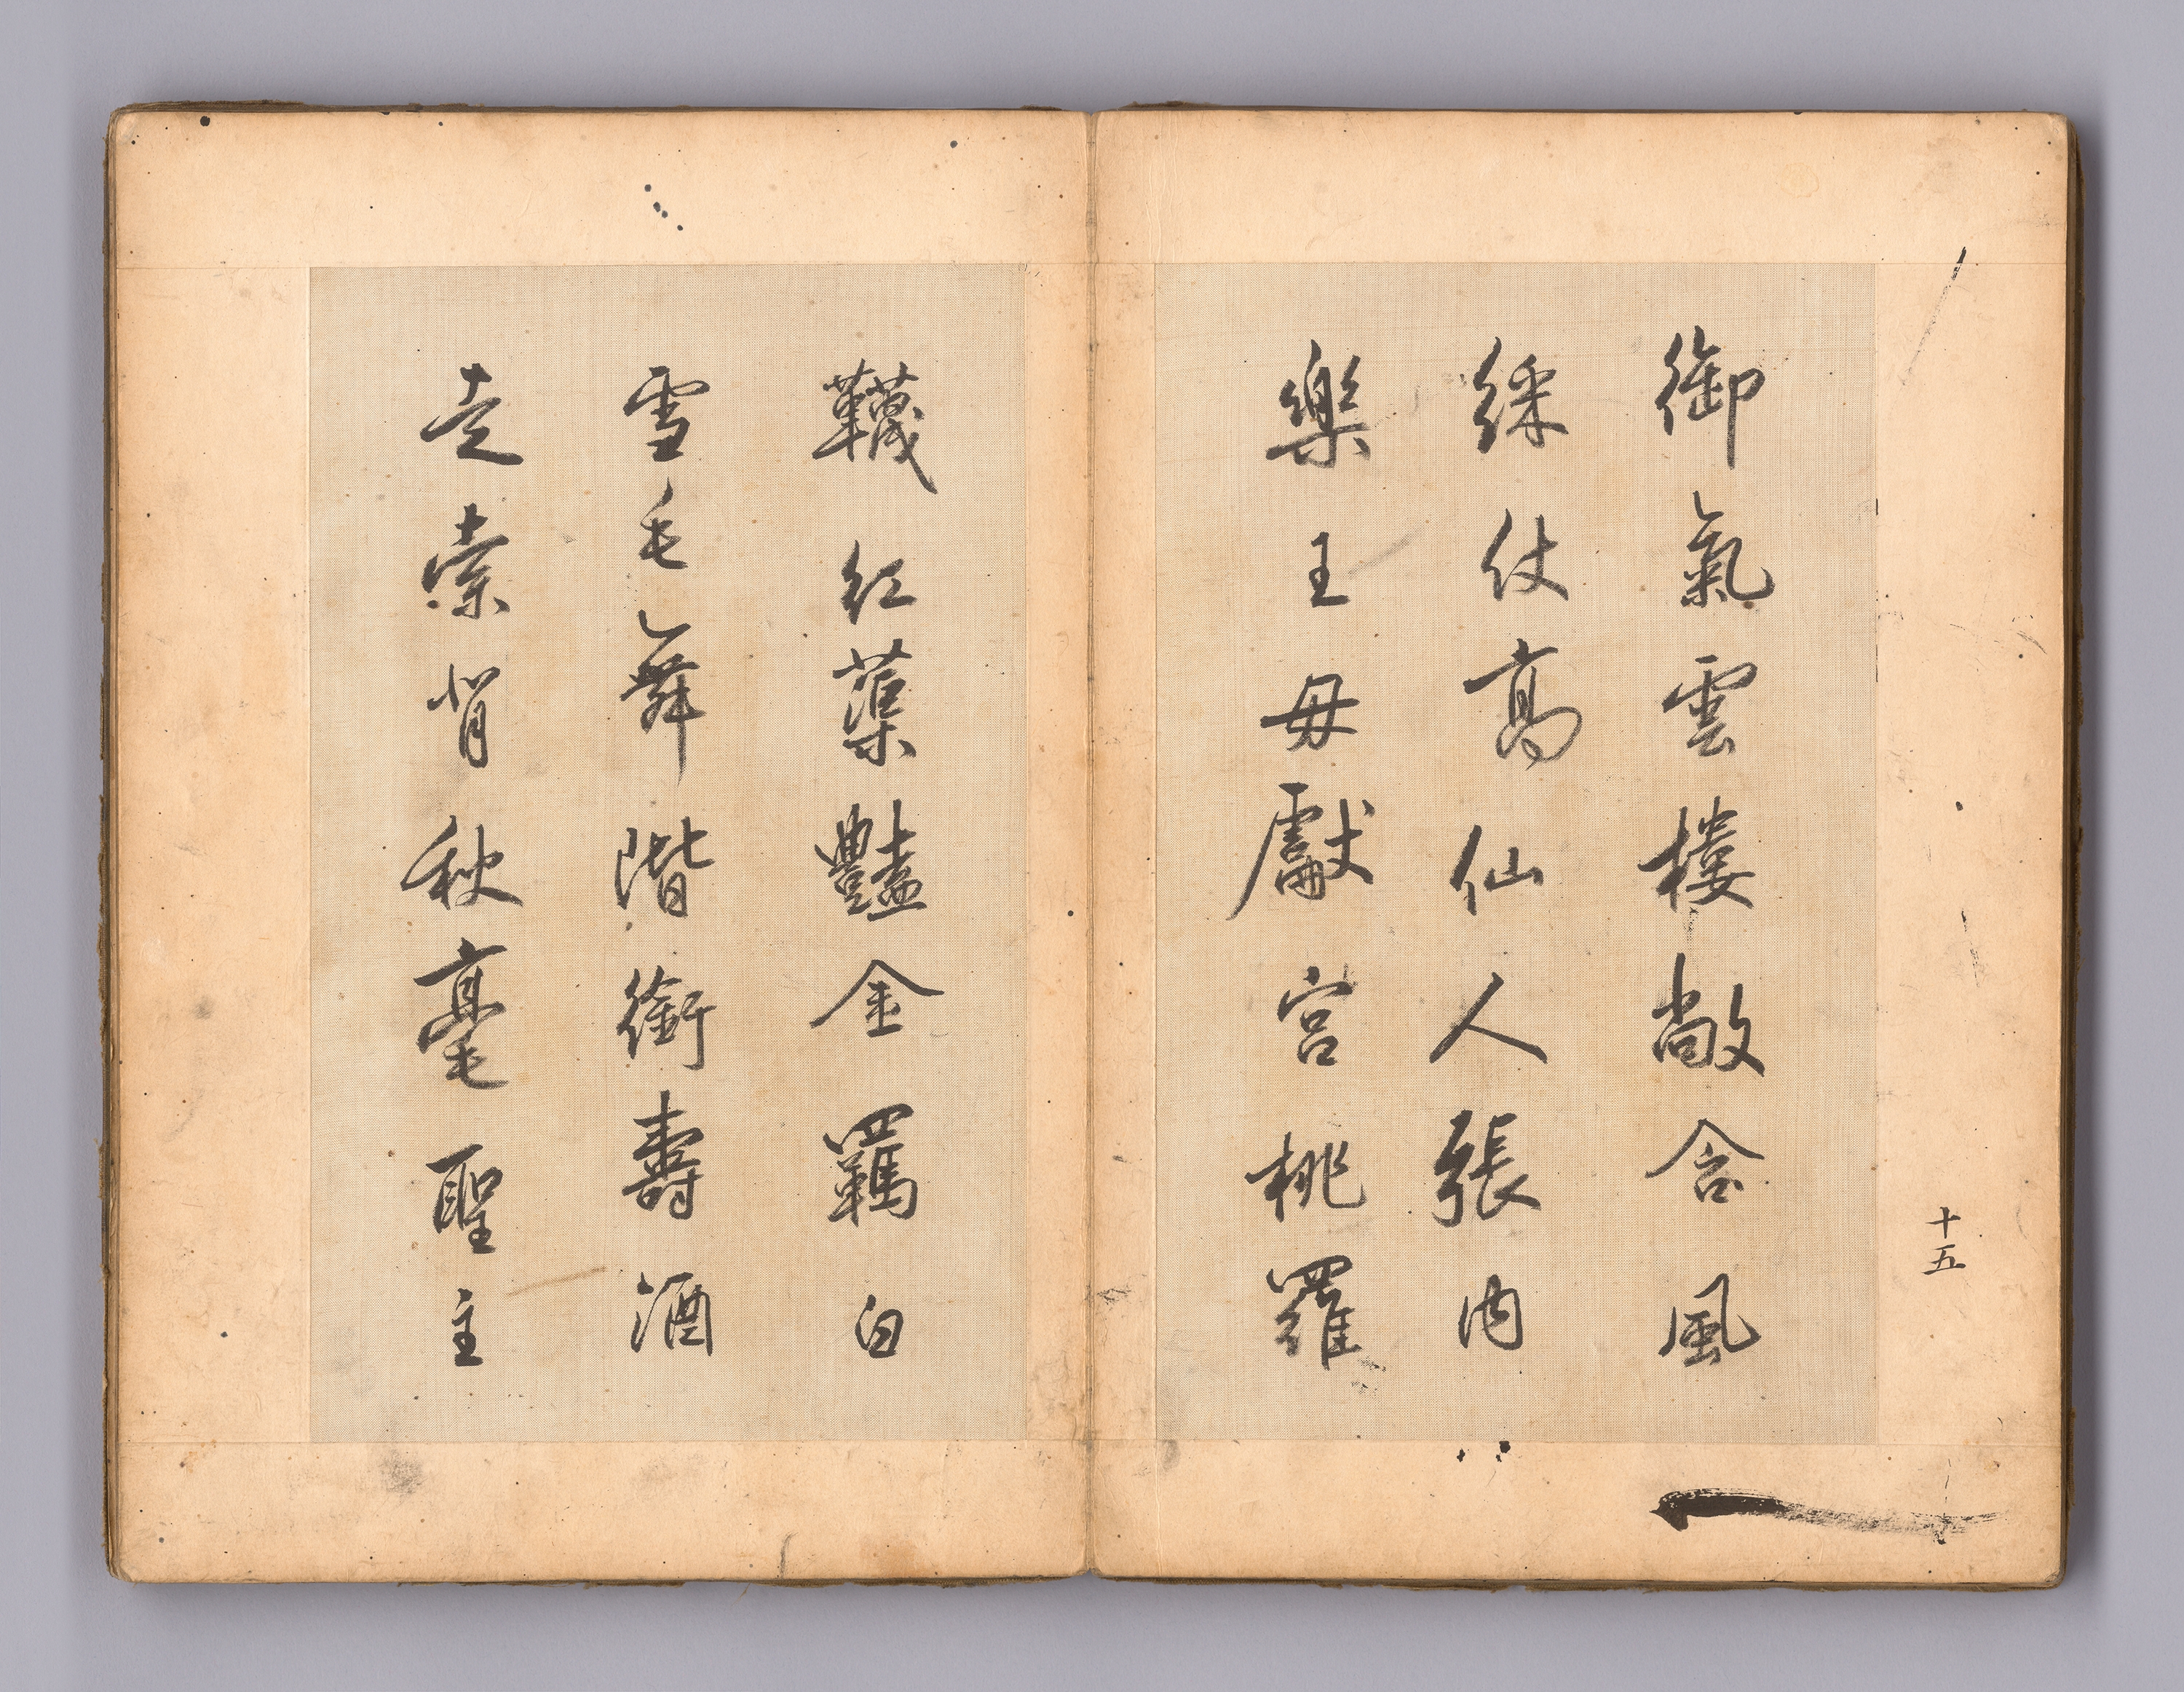 十五
御氣雲樓敞含風
綵仗高仙人張內
樂王母獻宮桃羅
韈紅蕖豔金羈白
雪毛舞階銜壽酒
走索背秋毫聖主